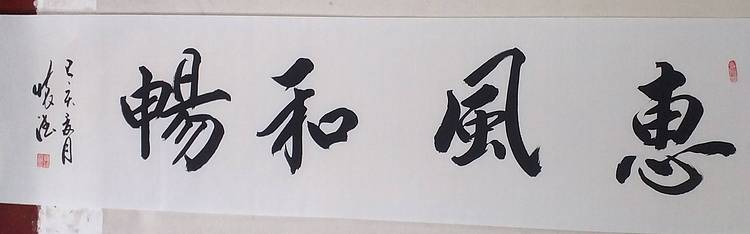 惠風和暢
己亥夏月